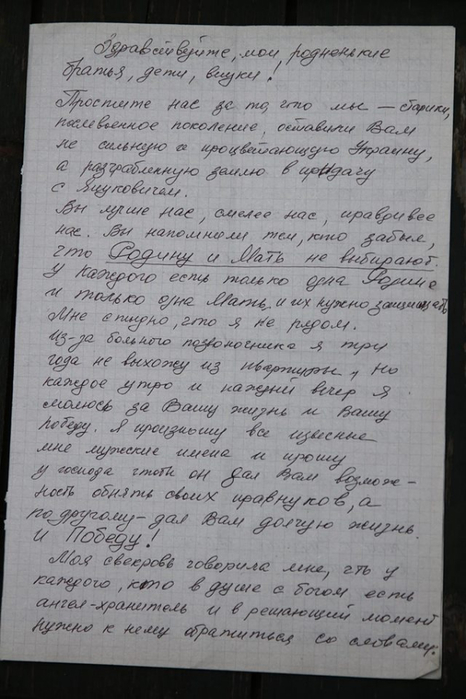 Здравствуйте, мои родненькие
братья, дети, внуки!
Простите нас за то, что мы — старики,
послевоенное поколение, оставили Вам
не сильную и процветающую Украину,
а разграбленную землю в придачу
с Януковичем.
Вы лучше нас, смелее нас, правдивее
нас. Вы напомнили тем, кто забыл,
что Родину и Мать не выбирают.
У каждого есть только одна Родина
и только одна Мать, и их нужно защищать.
Мне стыдно, что я не рядом.
Из-за больного позвоночника я три
года не выхожу из квартиры, но
каждое утро и каждый вечер я
молюсь за Вашу жизнь и Вашу
победу. Я произношу все известные
мне мужские имена и прошу
у господа чтоби он дал Вам возмож-
ность обнять своих правнуков, а
по другому - дал Вам долгую жизнь.
И Победу!
Моя свекровь говорила мне, что у
каждого, кто в душе с богом есть
ангел-хранитель и в решающий момент
нужно к нему обратиться со словами: